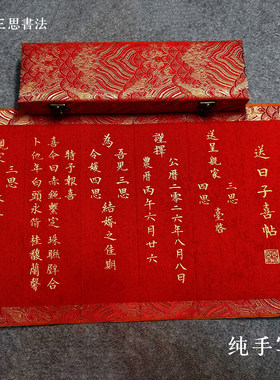 三思書法
送日子喜帖
三思
送呈親家 臺啓
四思
公曆二零二六年八月八日
謹擇
農曆丙午六月廿六
吾兒三思
為 結婚之佳期
令嬡四思
特予報喜
喜今日赤繩繫定 珠聯璧合
卜他年白頭永偕 桂馥蘭馨
三思
纯手